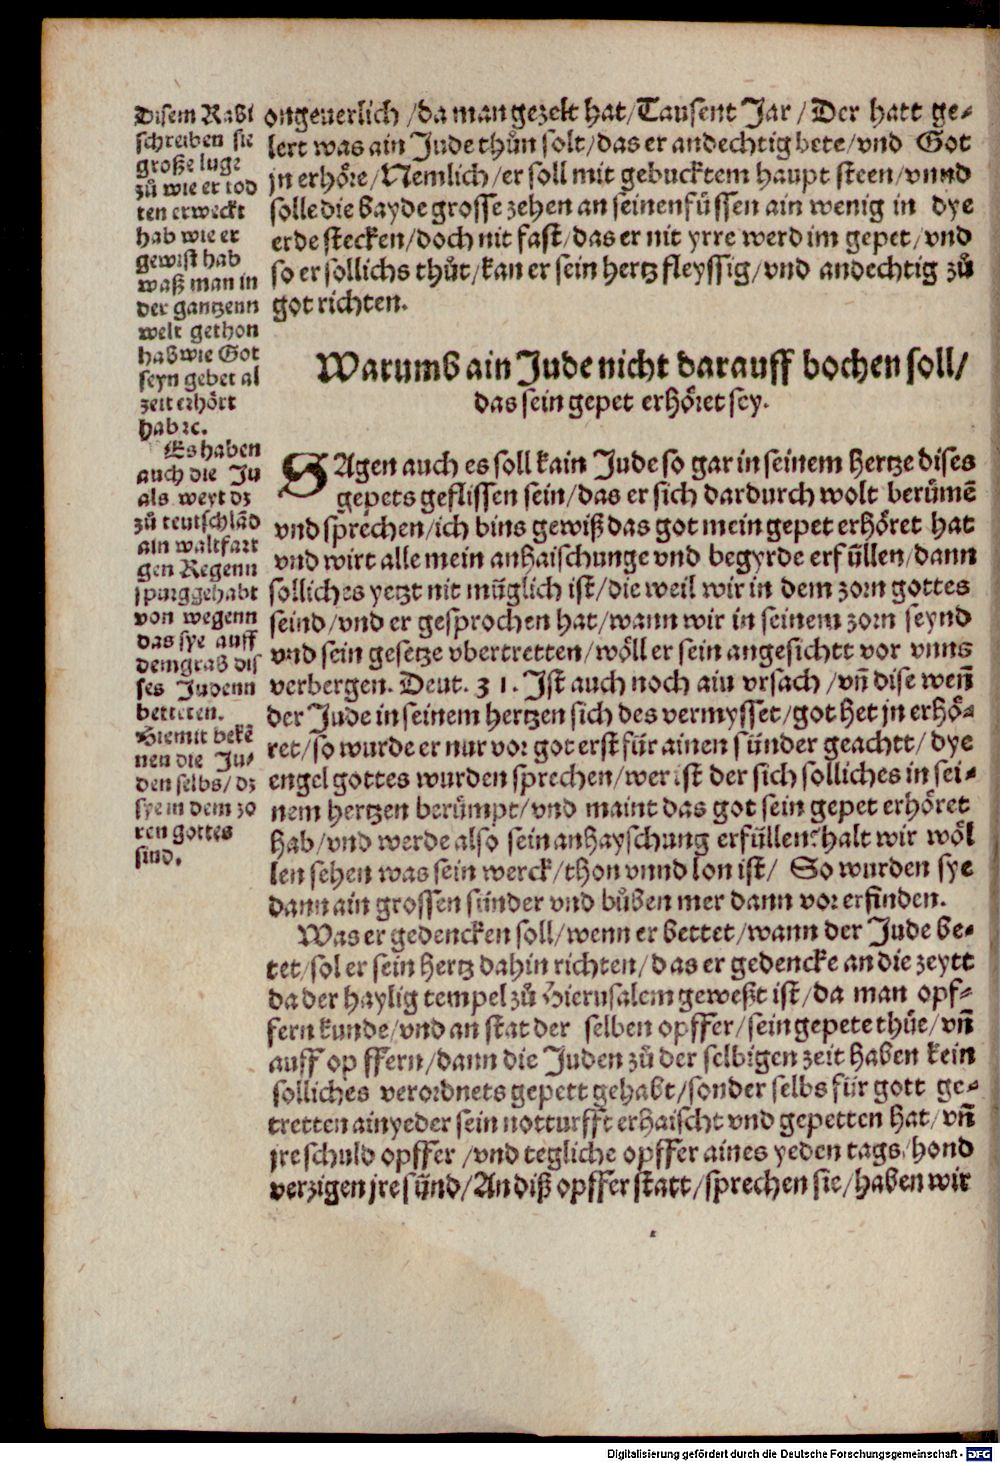 Disem Rabi
schreiben sie
große luge
zů wie er tod
ten erweckt
hab wie er
gewist hab
waß man in
der gantzenn
welt gethon
hab wie Got
seyn gebet al
zeit erhört
hab ꝛc.
Es haben
auch die Ju
als weyt dz
zů teutschlād
ain walfart
gen Regenn
spurg gehabt
von wegenn
das sye auff
dem grab dis
ses Judenn
betteten.
Hiemit bekē
nen die Ju⸗
den selbs/ dz
sye in dem zo
ren gottes
sind.
ongeuerlich /da man gezelt hat/Tausent Jar / Der hatt ge⸗
lert was ain Jude thůn solt/das er andechtig bete/vnd Got
jn erhöre/Nemlich/er soll mit gebucktem haupt steen/vnnd
solle die bayde grosse zehen an seinen füssen ain wenig in dye
erde stecken/doch nit fast/das er nit yrre werd im gepet/vnd
so er sollichs thůt/kan er sein hertz fleyssig/vnd andechtig zů
got richten.
Warumb ain Jude nicht darauff bochen soll/
das sein gepet erhöret sey.
SAgen auch es soll kain Jude so gar in seinem hertze dises
gepets geflissen sein/das er sich dardurch wolt berůmē
vnd sprechen/ich bins gewiß das got mein gepet erhöret hat
vnd wirt alle mein anhaischunge vnd begyrde erfüllen/dann
solliches yetzt nit müglich ist/die weil wir in dem zorn gottes
seind/vnd er gesprochen hat/wann wir in seinem zorn seynd
vnd sein gesetze vbertretten/wöll er sein angesichtt vor vnns
verbergen. Deut. 31. Jst auch noch ain vrsach /vn̄ dise wen̄
der Jude in seinem hertzen sich des vermysset/got het jn erhö⸗
ret/so wurde er nur vor got erst für ainen sünder geachtt/ dye
engel gottes wurden sprechen/wer ist der sich solliches in sei⸗
nem hertzen berůmpt/vnd maint das got sein gepet erhöret
hab/vnd werde also sein anhayschung erfüllen? halt wir wöl
len sehen was sein werck/thon vnnd lon ist/ So wurden sye
dann ain grossen sünder vnd bůben mer dann vor erfinden.
Was er gedencken soll/wenn er bettet/wann der Jude be⸗
tet/sol er sein hertz dahin richten/das er gedencke an die zeytt
da der haylig tempel zů Hierusalem geweßt ist/da man opf⸗
fern kunde/vnd an stat der selben opffer/sein gepete thüe/vn̄
auff opffern/dann die Juden zů der selbigen zeit haben kein
solliches verordnets gepett gehabt/sonder selbs für gott ge⸗
tretten ain yeder sein notturfft erhaischt vnd gepetten hat/vn̄
jre schuld opffer /vnd tegliche opffer aines yeden tags/hond
verzigen jre sünd/An diß opffer statt/sprechen sie/haben wir
Digitalisierung gefördert durch die Deutsche Forschungsgemeinschaft - DFG